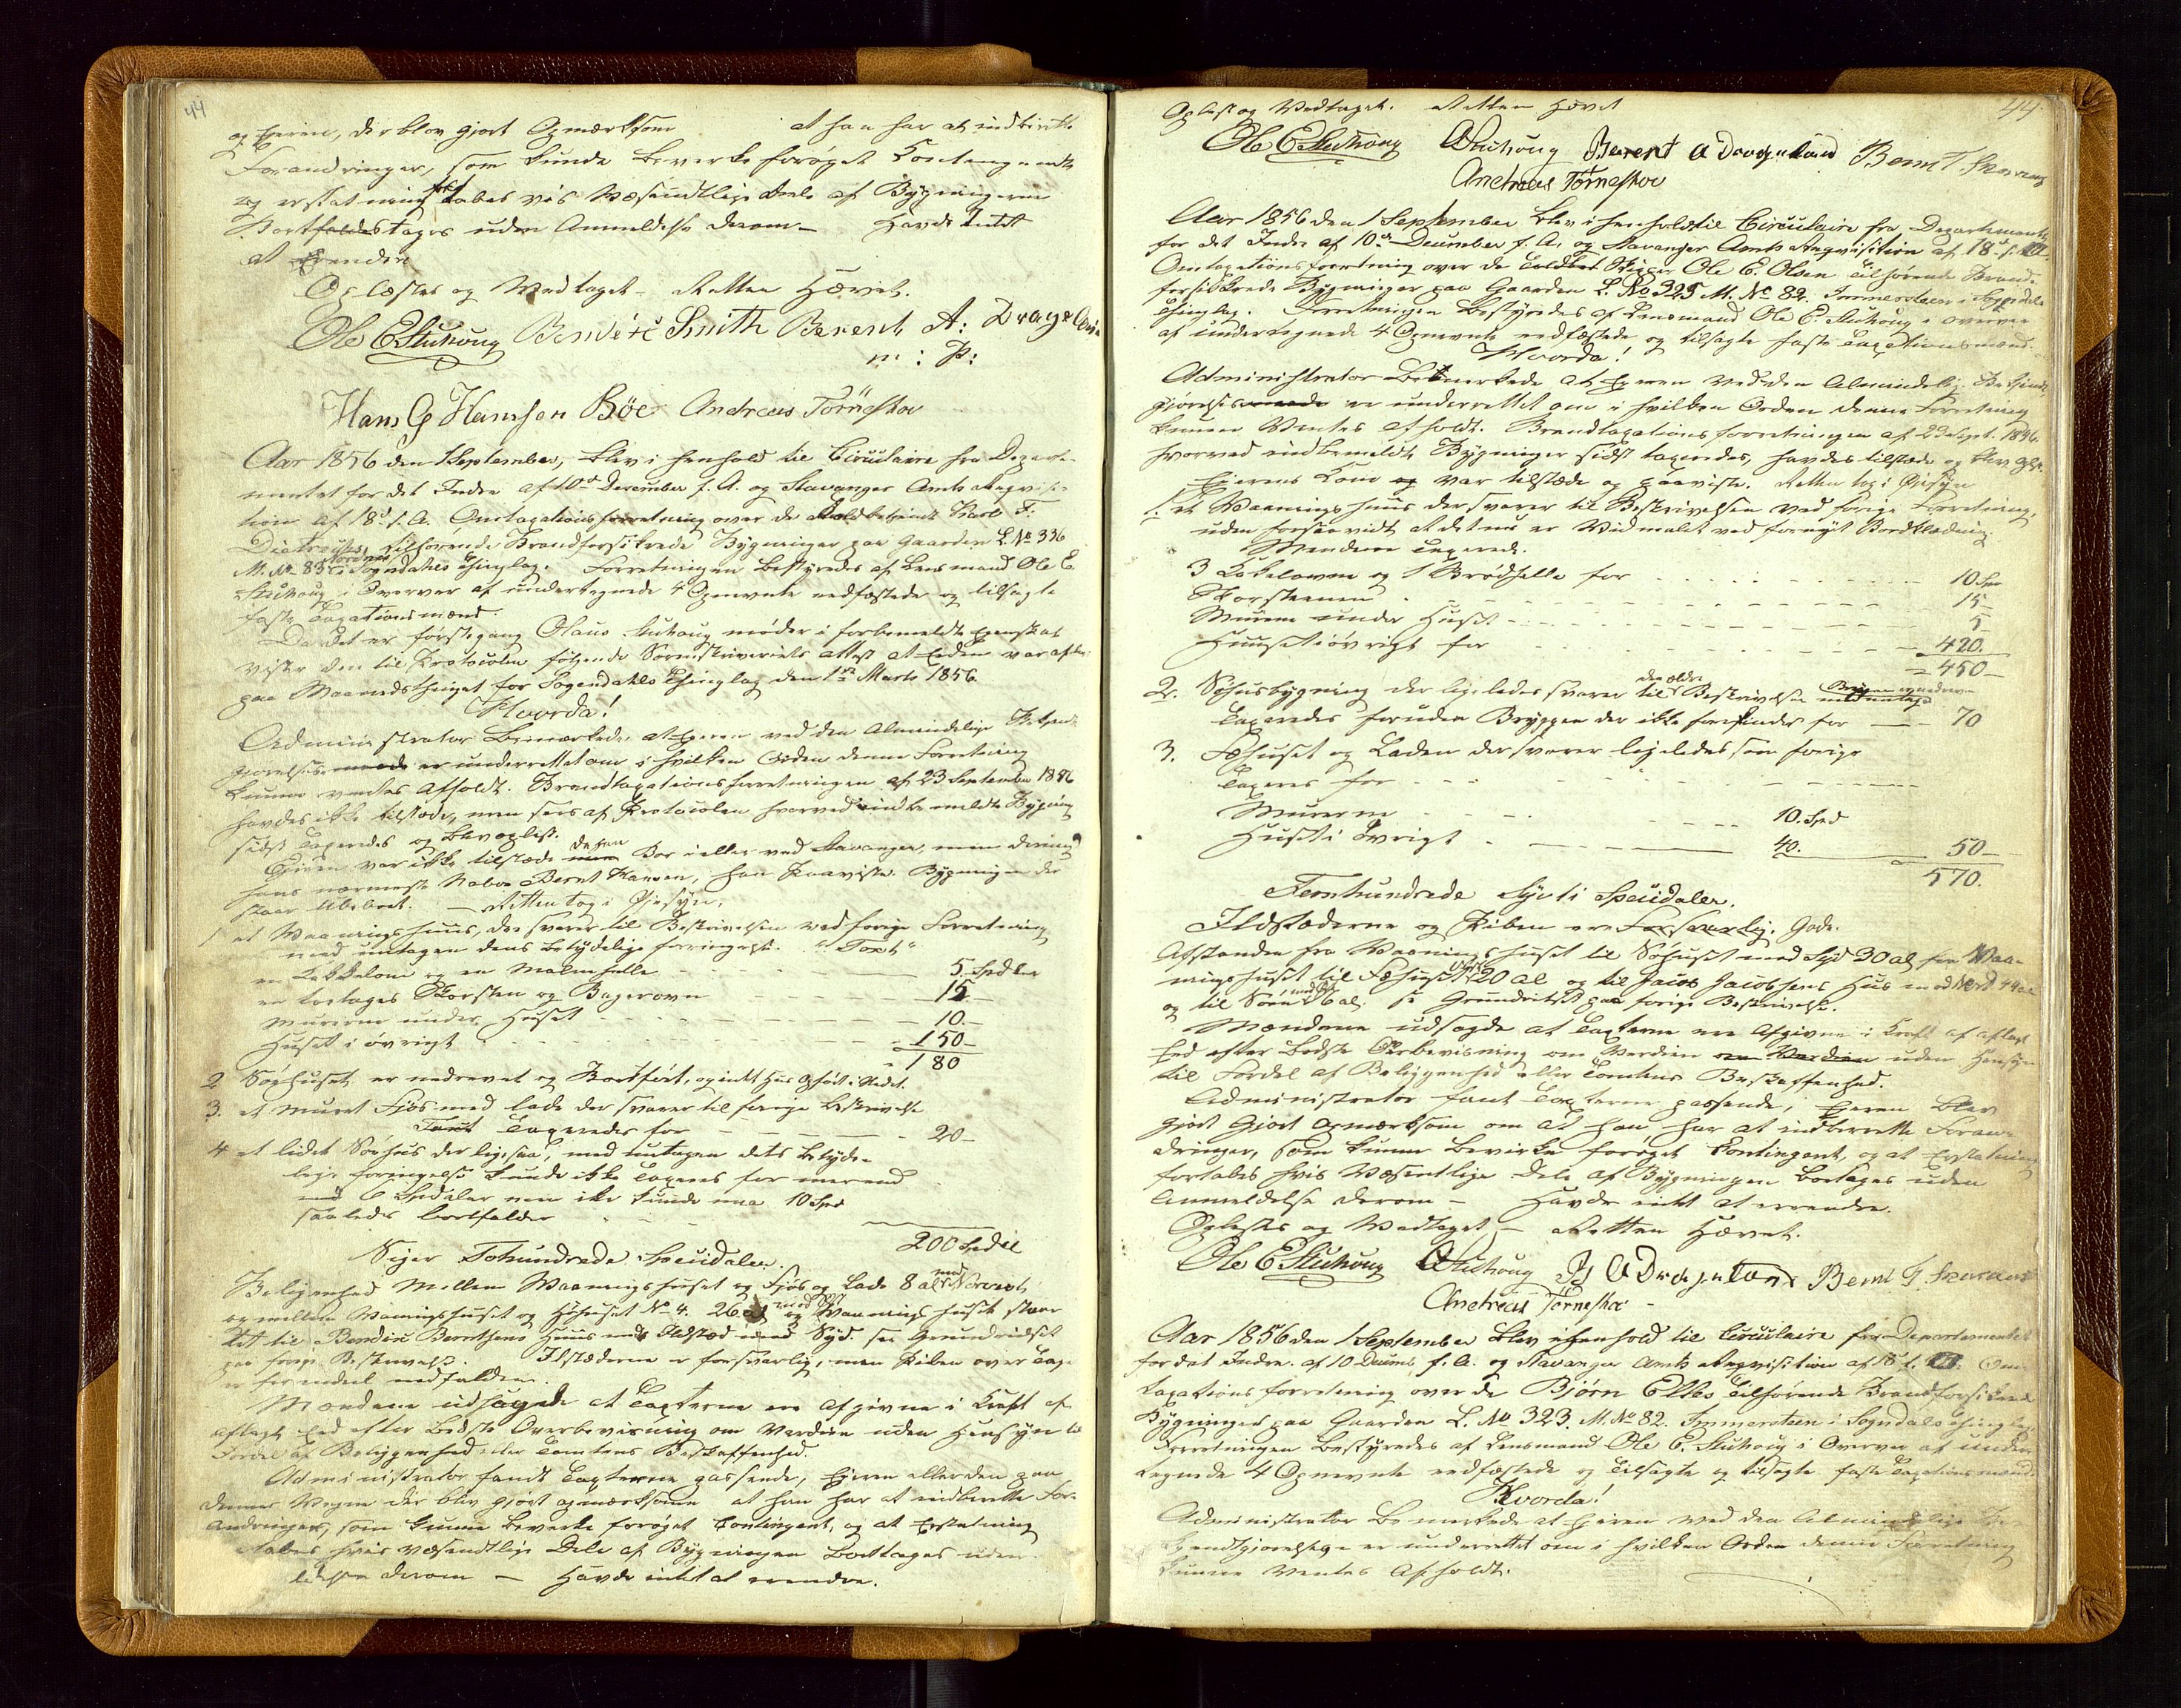 44
og Eieren, der blev gjort Opmærksom at han har at indberette
Forandringer, som kunde bevirke forøget Contingendt
og erstatning tabes vis Væsendtlige Dele af Bygningerne
Bortfaldestages uden Anmeldelse derom – Havde Intet
at erendre
Oplæstes og Vedtaget – Retten Hævet.
Ole E Stuhoug Bendix Smith Berent A: Drageland
m: P:
Hans G Hansen Böe Andreas Törneskov
Aar 1856 den 1 September, blev i henhold til Circulaire fra Departe-
mentet for det Indre af 10de December f. A. og Stavanger Amts Reqvisi-
tion af 18d s. A. Omtaxationsforretning over de Toldbetjent F.
tilhørende Brandforsikrede Bygninger paa Gaarden L. No 336
M. No 83 i Sogndahls Thinglag. Forretningen bestyredes af Lensmand Ole E.
Stuhoug i Overvær af undertegnede 4 Opnevnte eedfæstede og tilsagte
faste Taxationsmænd.
Da det er førstegang Olaus Stuhoug møder i forbemeldte Egenskab
vistes den til Protocolen følgende Sorenskriveriets attest at Eeden var aflagt
paa Maanedsthinget for Sogendahls Thinglag den 1ste Marts 1856.
Hvorda!
Administrator Bemærkede, at Eieren ved den Almindelige Bekjendt-
gjørelses maade er underrettet om i hvilken Orden denne Forretning
kunne ventes afholdt. Brandtaxationsforretningen af 23 September 1846
havdes ikke tilstede, men sees af Protocolen hvorved indbemeldte Bygning
sidst Taxeredes og blev oplæst.
Eieren var ikke tilstæde da han Boer i eller ved Stavanger, men derimod
hans nærmeste Nabo Bernt Hansen, han Paaviste Bygningen der
staar Ubeboet. – Retten tog i Øiesyn:
1 et Vaaningshuus, der svarer til Beskrivelsen ved forige Forretning
med untagen dens betydelige forringelse. "Taxt"
en Kakkelovn og en Malmhelle – – – 5. Spdler
en toetages Skorsten og Bagerovn – – – 15 –
Murerne under Huset – – – 10. –
Huset i øvrigt – – – 150 –
180
2 Søhuset er nedrevet og Bortført, og intet Hus Opført i Stedet.
3. et Muret Fjøs med lade der svarer til forige beskrivelse
Taxt Taxeredes for – – – 20 –
4 et lidet Søehus der ligesaa, med untagen dets betyde-
lige forringelse kunde ikke Taxeres for mere end
6 Spdaler men ikke kunde naa 10 Spd
saaledes bortfalder
200 Spdlr
Siger Tohundrede Speciedaler.
Beligenhed Mellem Vaaningshuset og Fjøs og Lade 8 al mod Norvest
og mellem Vaaningshuset og Søhuset No 4. 26 al Vaanings huset staar
tæt til Bendix Berntsens Huus med Ildsted imod Syd. see Grundridset
paa forige Beskrivelse. Ilstæderne er forsvarlig, men Piben over Taget
er for endeel nedfalden.
Mændene udsagde at Taxterne ere afgivne i Kraft af
aflagt Eed efter bedste Overbevisning om Verdien uden Hensyn til
Fordel af Beliggenhed eller Tomtens Beskaffenhed.
Administrator fandt Taxterne passende, Eieren eller den paa
dennes Vegne der blev gjort opmærksom at han har at indberette For-
andringer, som kunne bevirke forøget Contingent, og at Erstatning
tabes hvis væsendtlige Dele af Bygningen borttages uden
derom – Havde intet at erendre.
44.
Oplæst og Vedtaget. Retten Hævet
Ole E Stuhoug OStuhoug Berent A Drageland Bernt T.
Andreas Törneskov
Aar 1856 den 1 September blev i henhold til Circulaire fra Departementet
for det Indre af 10de December f. A. og Stavanger Amts Reqvisition af 18d f. M.
Omtaxationsforretning over de Ole E. Olsen tilhørende Brand-
forsikkrede Bygninger paa Gaarden L. No 325 M. No 82. Immerstein i Sogndals
Thinglag. Forretningen bestyredes af Lensmand Ole E. Stuhoug i overvær
af undertegnede 4 Opnevnte eedfæstede og tilsagte faste Taxationsmænd.
Hvorda!
Administrator Bemerkede at Eieren ved den Almindelig Bekjendt-
gjørelses maade er underrettet om i hvilken Orden denne Forretning
kunne Ventes afholdt. Brandtaxationsforretningen af 23 Sept. 1846.
hvorved indbemeldte Bygninger sidst taxeredes, havdes tilstæde og blev oplæst.
Eierens Kone og var tilstæde og paaviste. Retten tog i Øiesyn
1. et Vaaningshuus der svarer til Beskrivelsen ved forige Forretning,
uden forsaavidt at det nu er Vidmalet ved fornyet Bordklædning.
Mændene Taxerede.
3 Kakelovne og 1 Brødhelle for – – – 10 Spd
Skorstenen – – – 15 –
Murene under Huset – – – 5
Huuset iøvrigt for – – – 420.
450 –
2. Søhusbygning der ligeledes svarer til den ældre Beskrivelse
Taxeredes foruden Bryggen der ikke forefindes for – – 70
3. Fæhuset og Laden der svarer ligeledes som forige
Taxeres for – – –
Murerne – – – 10. Spd
Huset i Øvrigt – – – 40. – – – 50 –
570.
Femhundrede Syvti Speciedaler.
Ildstæderne og Piben ere Forsvarlig. Gode.
Afstanden fra Vaaningshuset til Søhuset mod Syd 30 al, fra Vaa-
ningshuset til Fæhuset 20 al og til Jacob Jacobsens Hus mod Nord 44 al
og til Søen 6 al. se Grundridset paa forige Beskrivelse.
Mændene udsagde at Taxterne ere Afgivne i Kraft af aflagt
Eed efter bedste Overbevisning om Verdien om Verdien uden Hensyn
til Fordel af Beliggenhed eller Tomtens Beskaffenhed.
Administrator fant Taxterne passende, Eieren blev
gjort Gjort opmærksom om at han har at indberette Foran-
dringer, som kunne bevirke forøget Contingent, og at Erstatning
fortabes hvis Væsentlige Dele af Bygningen bortages uden
Anmeldelse derom – Havde intet at errendre.
Oplæstes og Vedtaget – Retten Hævet.
Ole E Stuhoug OStuhoug B A Drageland Bernt T.
Andreas Törneskov
Aar 1856 den 1 September blev i henhold til Circulaire fra Departementet
for det Indre. af 10 Decemb f. A. og Stavanger Amts Reqvisition af 18 f. M. Om-
taxationsforretning over de Bjørn Elles tilhørende Brandforsikrede
Bygninger paa Gaarden L. No 323. M. No 82. Immerstein i Sogndals Thinglag
Forretningen bestyredes af Lensmand Ole E. Stuhoug i Overvær af under-
tegnede 4 Opnevnte eedfæstede og tilsagte og tilsagte faste Taxationsmænd.
Hvorda!
Administrator Bemerkede at Eieren ved den Almindelige Be-
kjendtgjørelse er underrettet om i hvilken Orden denne Forretning
kunne Ventes Afholdt.